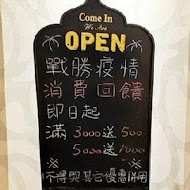 Come In
We Are
OPEN
戰勝疫情
消費回饋
即日起
滿 3000送500
5000送1000
不得與其它優惠併用